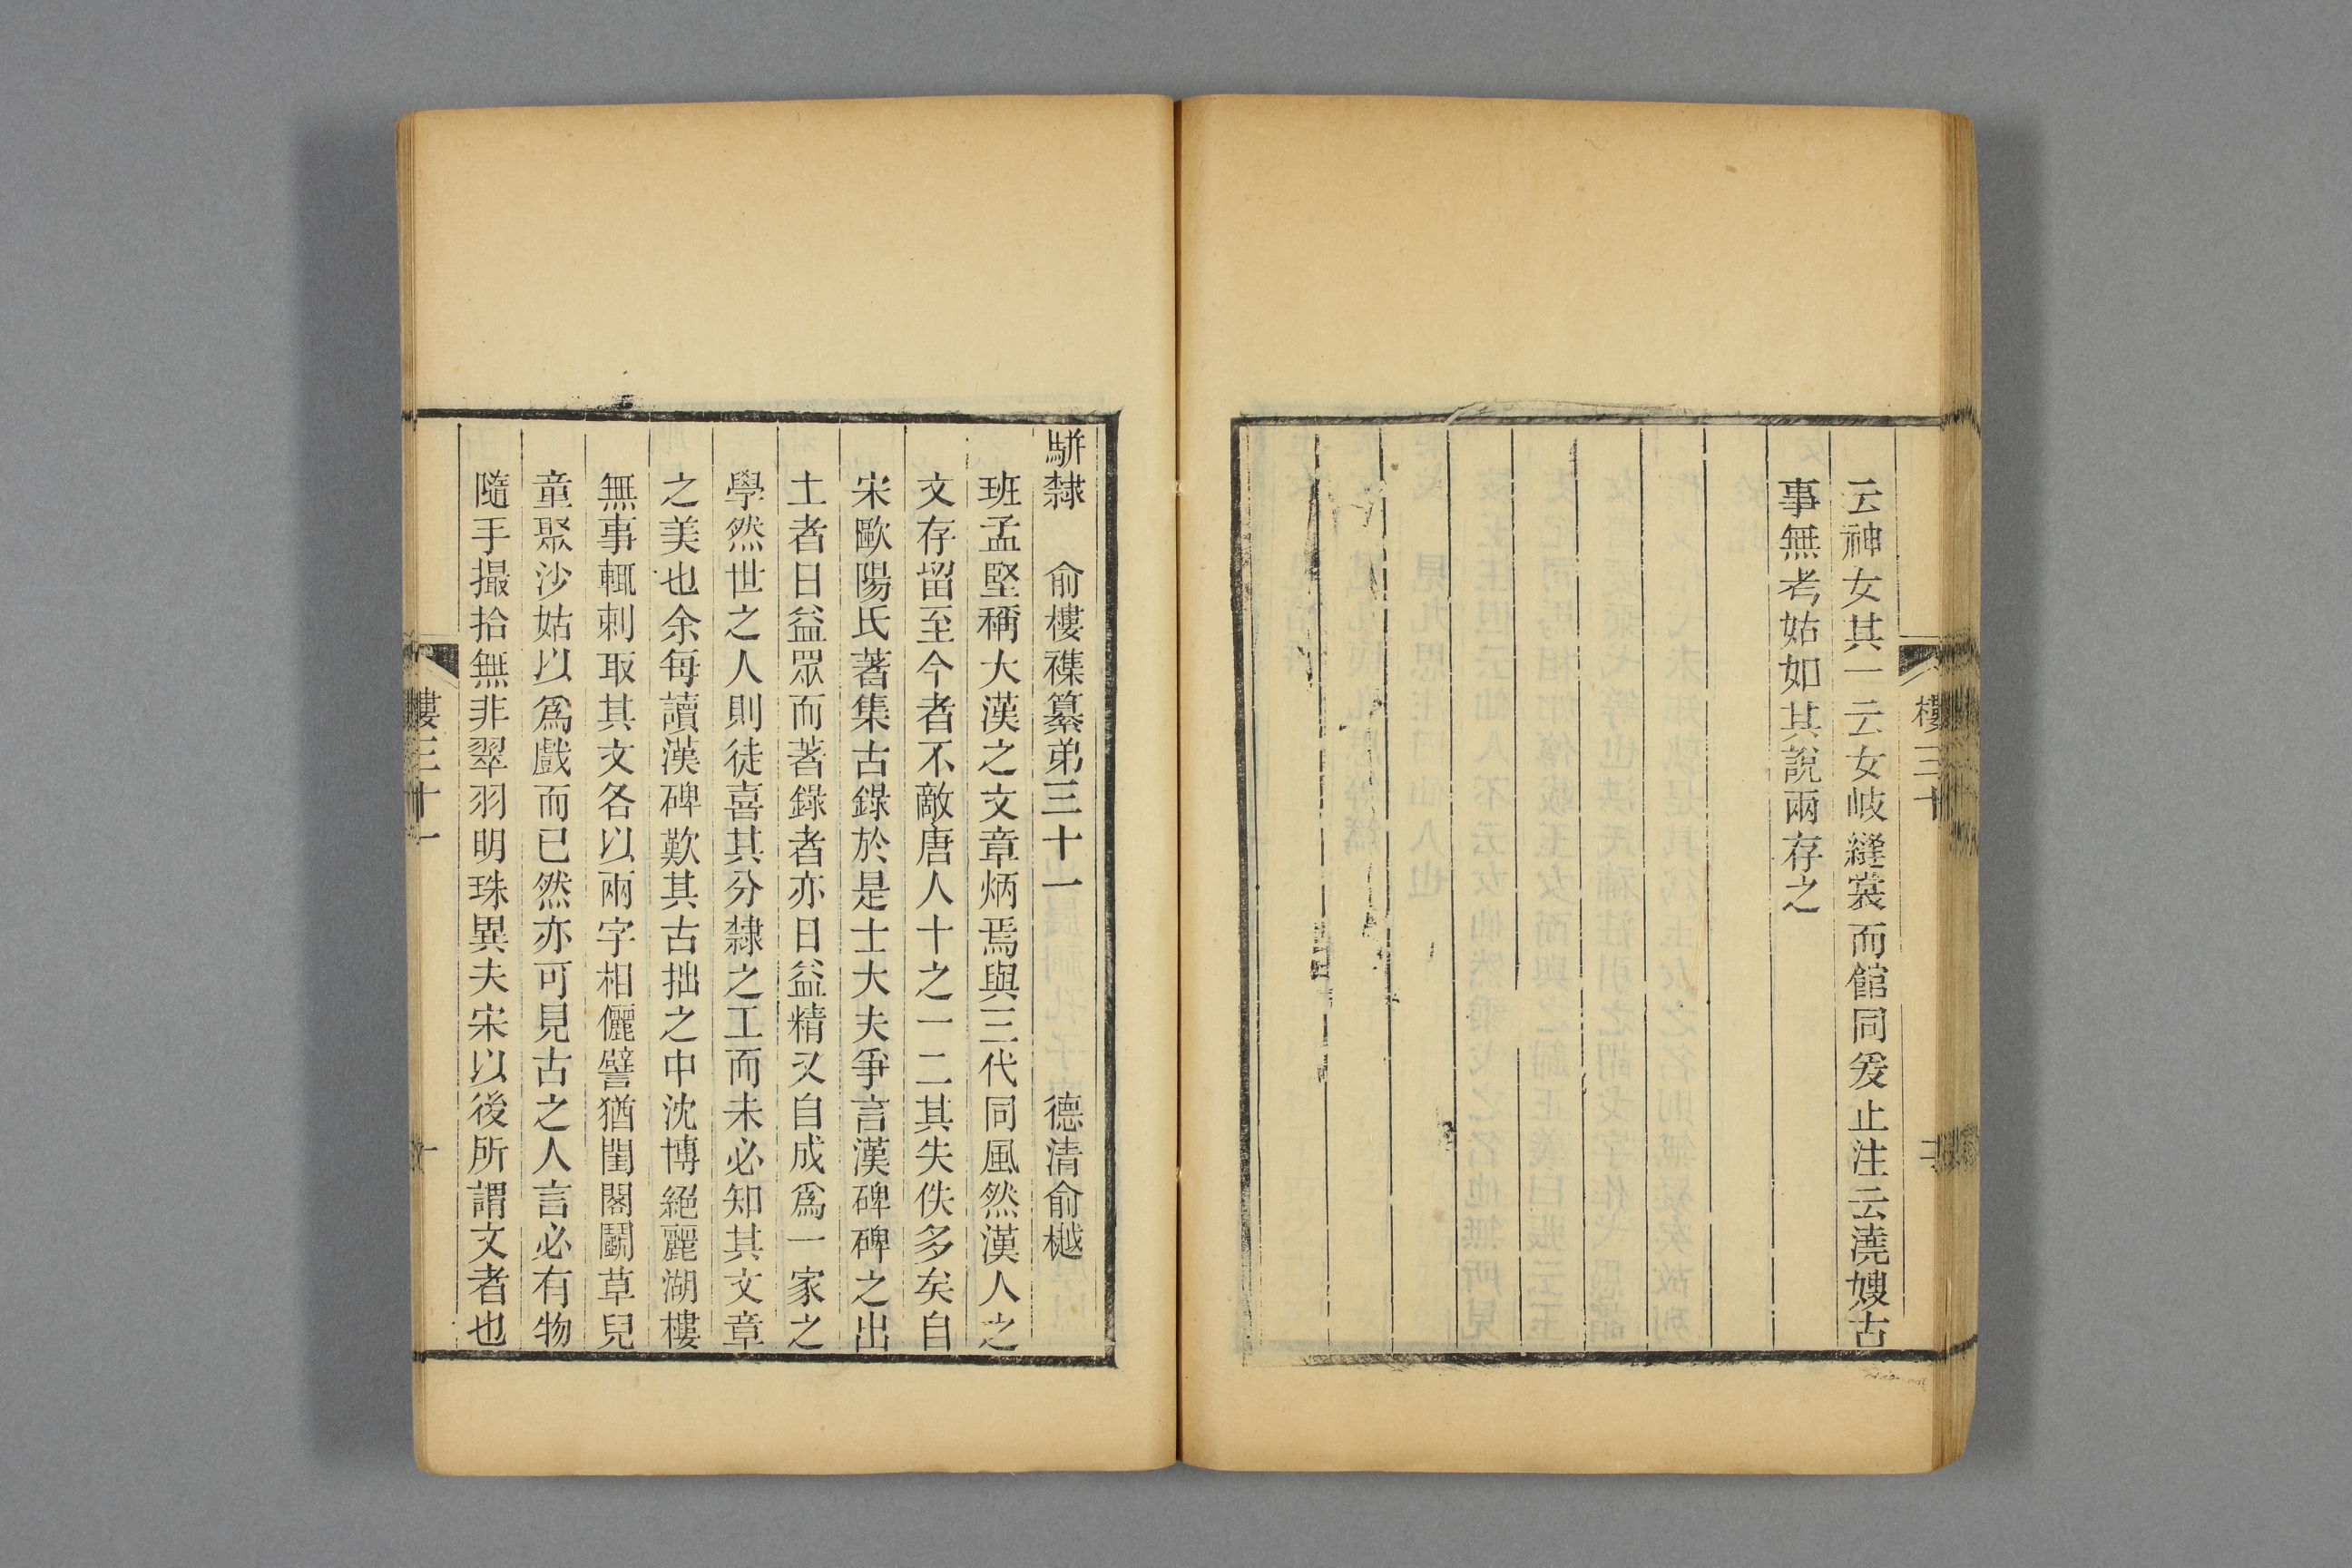 云神女其一云女岐縫裳而館同爰止注云澆嫂古
事無考姑如其說兩存之
樓三十
駢隸　俞樓襍纂弟三十一　德清俞樾
班孟堅稱大漢之文章炳焉與三代同風然漢人之
文存留至今者不敵唐人十之一二其失佚多矣自
宋歐陽氏著集古錄於是士大夫爭言漢碑碑之出
土者日益眾而著錄者亦日益精又自成爲一家之
學然世之人則徒喜其分隸之工而未必知其文章
之美也余每讀漢碑歎其古拙之中沈博絕麗湖樓
無事輒刺取其文各以兩字相儷譬猶閨閣鬭草兒
童聚沙姑以爲戲而已然亦可見古之人言必有物
隨手撮拾無非翠羽明珠異夫宋以後所謂文者也
樓三十一